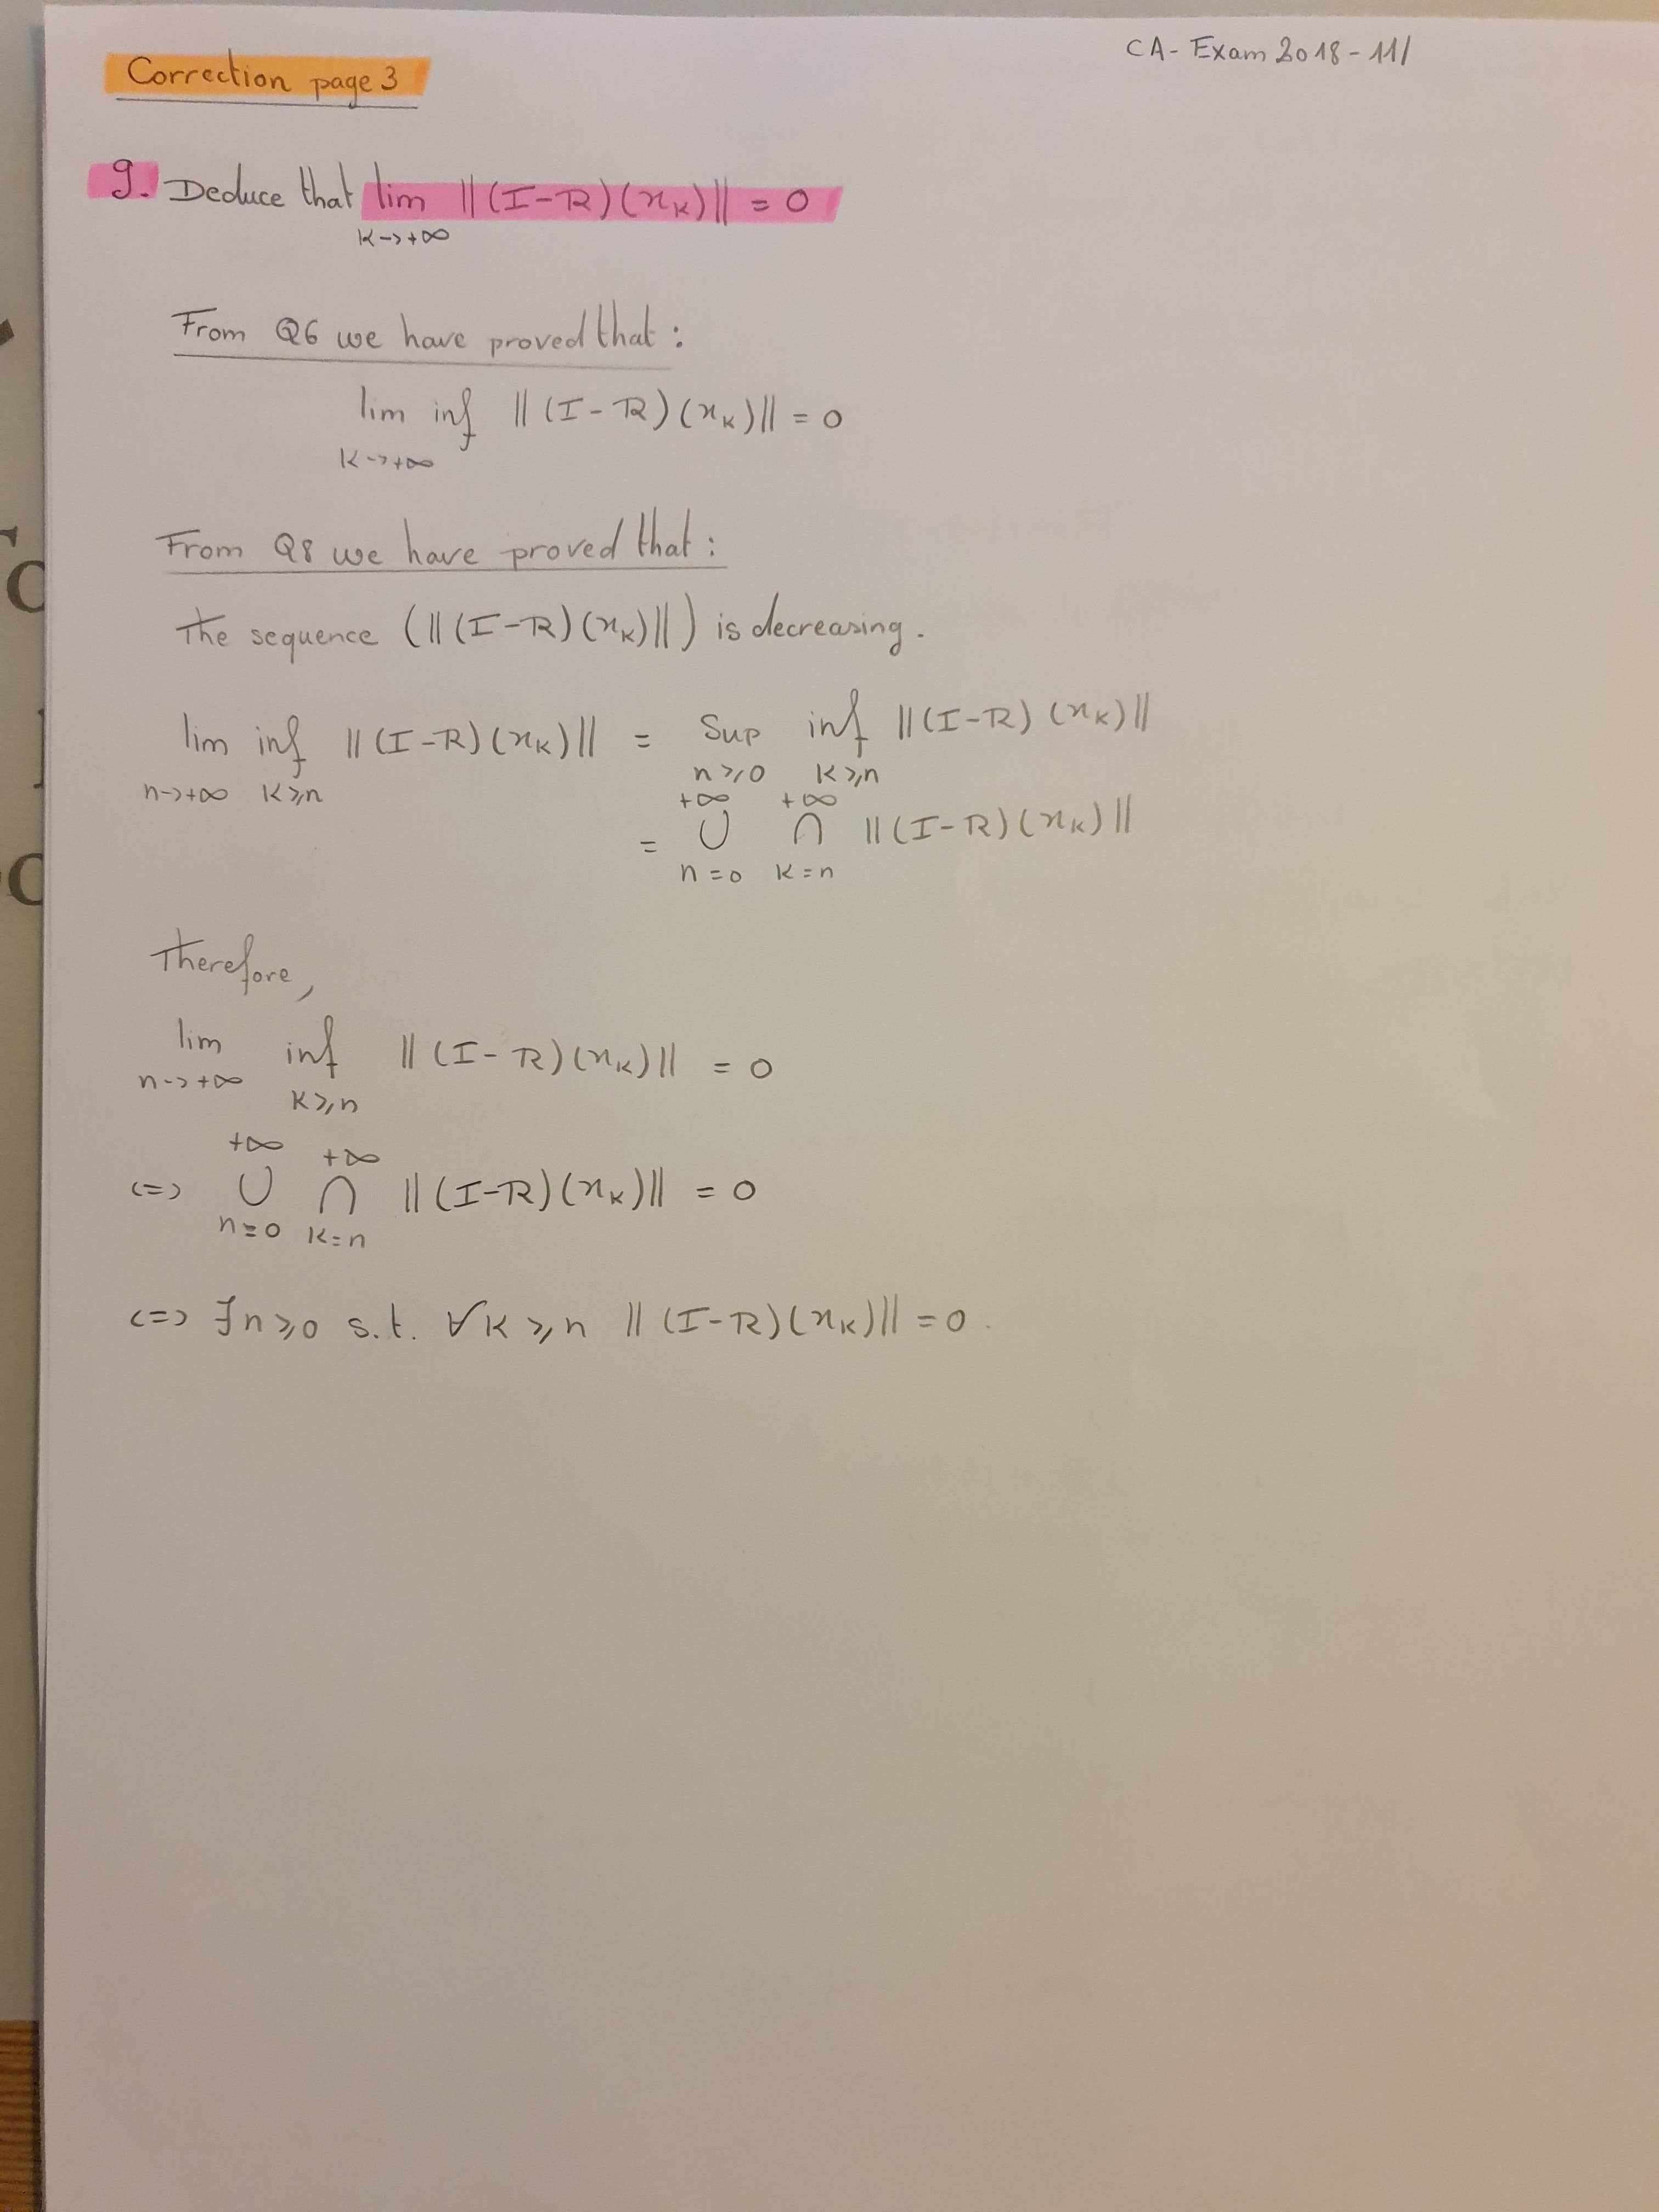 CA- Exam 2018-11/
Correction page 3
9. Deduce that lim ||(I-R)(x_K)|| = 0
K->+∞
From Q6 we have proved that :
lim inf ||(I-R)(x_K)|| = 0
K->+∞
From Q8 we have proved that :
The sequence (||(I-R)(x_K)||) is decreasing.
lim inf ||(I-R)(x_K)|| = Sup inf ||(I-R)(x_K)||
n->+∞ K≥n n≥0 K≥n
+∞ +∞
= ∪ ∩ ||(I-R)(x_K)||
n=0 K=n
Therefore,
lim inf ||(I-R)(x_K)|| = 0
n->+∞ K≥n
+∞ +∞
<=> ∪ ∩ ||(I-R)(x_K)|| = 0
n=0 K=n
<=> ∃n≥0 s.t. ∀K≥n ||(I-R)(x_K)|| = 0.